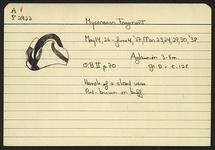 A
P 2922
Mycenaean Fragment
May 14, 26 - June 4, '37, Mar 23, 24, 29, 30, '38
Agliamin 3-4m
O.B. II p. 70
gr. D - C. 128
Handle of a closed vase
Red-brown on buff